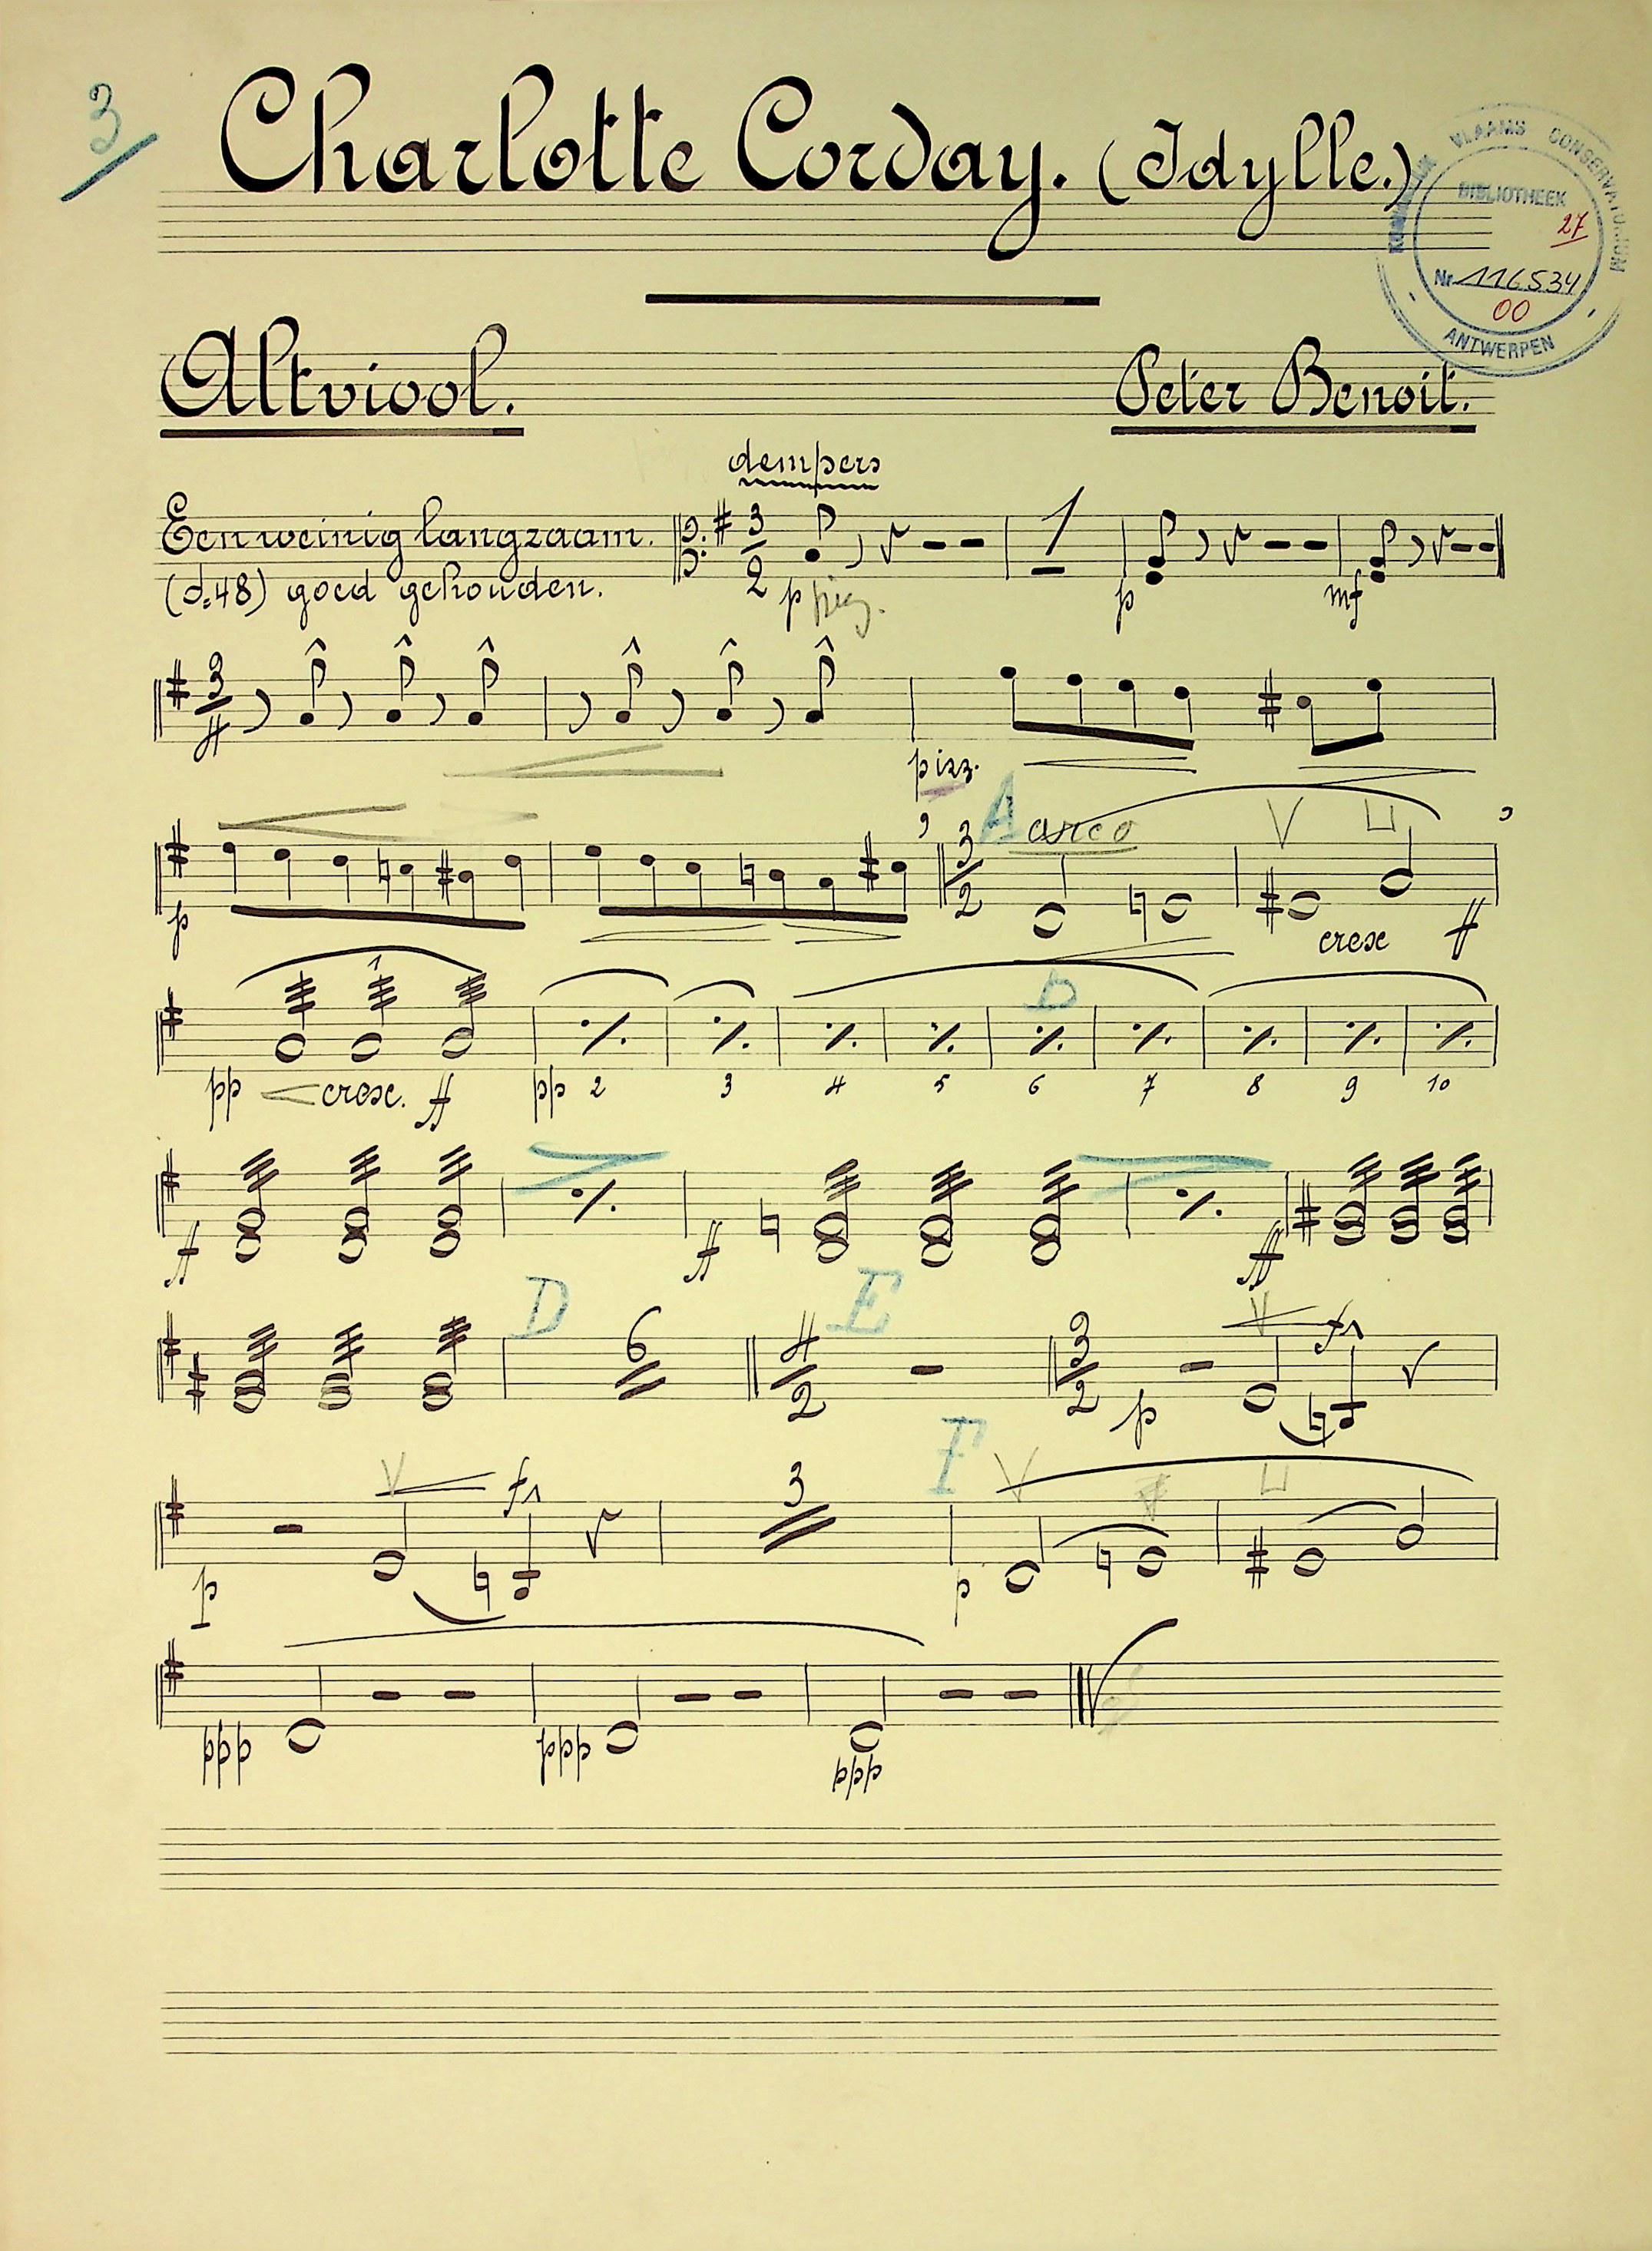 3
Charlotte Corday. (Idylle.)
KONINKLIJK VLAAMS CONSERVATORIUM
BIBLIOTHEEK
27
Nr 116534
00
ANTWERPEN
Altviool.
Peter Benoit.
dempers
Een weinig langzaam.
3
2
1
(𝅗𝅥=48) goed gehouden.
p
p
mf
3
4
pizz.
A arco
3
2
p
cresc
ff
1
b
pp cresc. ff pp 2 3 4 5 6 7 8 9 10
ff ff fff
D 6 E
4
2
3
2
p
f
f 3 F
p p
ppp ppp ppp